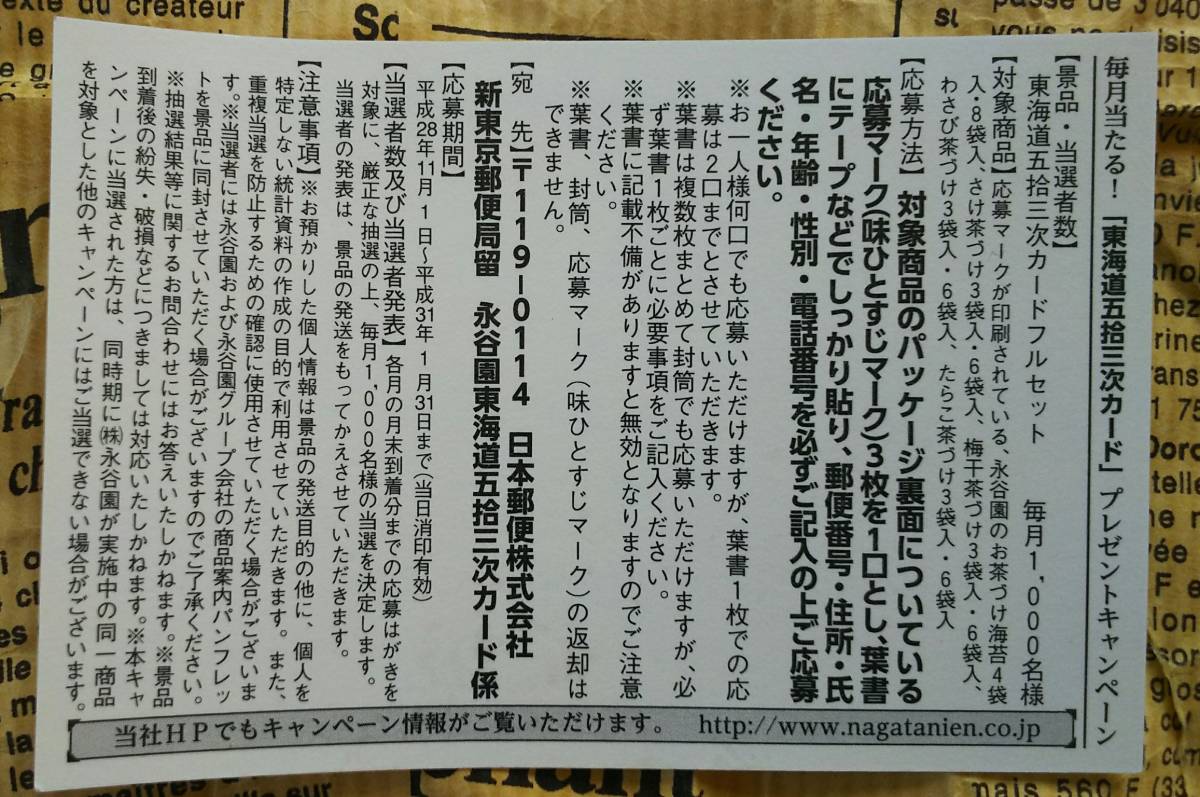 毎月当たる！「東海道五拾三次カード」プレゼントキャンペーン
【景品・当選者数】
東海道五拾三次カードフルセット　　毎月1,000名様
【対象商品】応募マークが印刷されている、永谷園のお茶づけ海苔4袋
入・8袋入、さけ茶づけ3袋入・6袋入、梅干茶づけ3袋入・6袋入、
わさび茶づけ3袋入・6袋入、たらこ茶づけ3袋入・6袋入
【応募方法】対象商品のパッケージ裏面についている
応募マーク（味ひとすじマーク）3枚を1口とし、葉書
にテープなどでしっかり貼り、郵便番号・住所・氏
名・年齢・性別・電話番号を必ずご記入の上ご応募
ください。
※お一人様何口でも応募いただけますが、葉書1枚での応
募は2口までとさせていただきます。
※葉書は複数枚まとめて封筒でも応募いただけますが、必
ず葉書1枚ごとに必要事項をご記入ください。
※葉書に記載不備がありますと無効となりますのでご注意
ください。
※葉書、封筒、応募マーク（味ひとすじマーク）の返却は
できません。
【宛　先】〒119-0114　日本郵便株式会社
新東京郵便局留　永谷園東海道五拾三次カード係
【応募期間】
平成28年11月1日〜平成31年1月31日まで（当日消印有効）
【当選者数及び当選者発表】各月の月末到着分までの応募はがきを
対象に、厳正な抽選の上、毎月1,000名様の当選を決定します。
当選者の発表は、景品の発送をもってかえさせていただきます。
【注意事項】※お預かりした個人情報は景品の発送目的の他に、個人を
特定しない統計資料の作成の目的で利用させていただきます。また、
重複当選を防止するための確認に使用させていただく場合がございま
す。※当選者には永谷園および永谷園グループ会社の商品案内パンフレッ
トを景品に同封させていただく場合がございますのでご了承ください。
※抽選結果等に関するお問合わせにはお答えいたしかねます。※景品
到着後の紛失・破損などにつきましては対応いたしかねます。※本キャ
ンペーンに当選された方は、同時期に㈱永谷園が実施中の同一商品
を対象とした他のキャンペーンにはご当選できない場合がございます。
当社HPでもキャンペーン情報がご覧いただけます。　http://www.nagatanien.co.jp